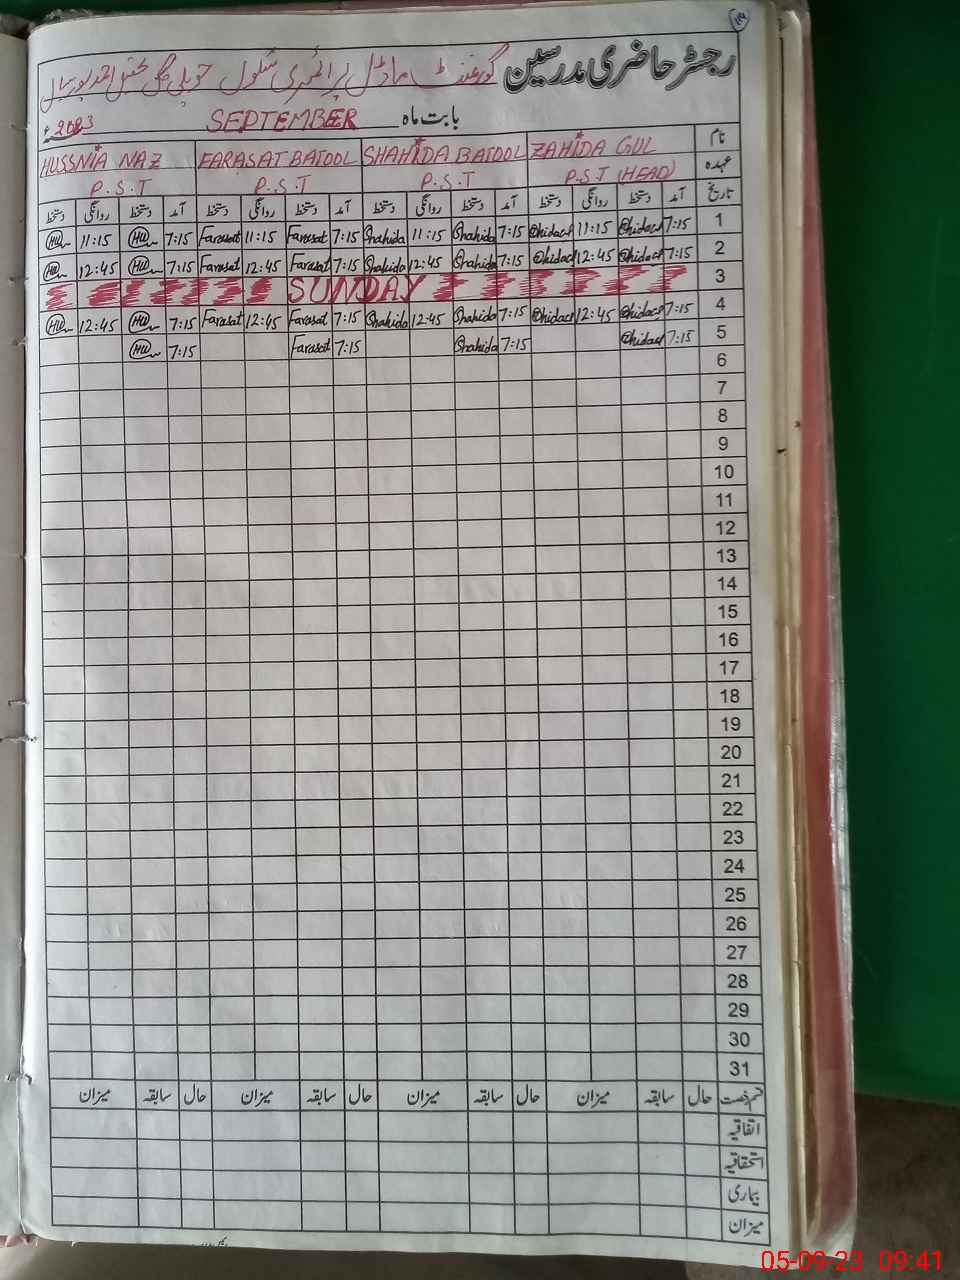 رجسٹر حاضری مدرسین گورنمنٹ ماڈل پرائمری سکول حویلی
بابت ماہ SEPTEMBER 2023ء
نام ZAHIDA GUL SHAHIDA BATOOL FARASAT BATOOL HUSSNIA NAZ
عہدہ P.S.T (HEAD) P.S.T P.S.T P.S.T
تاریخ آمد دستخط روانگی دستخط آمد دستخط روانگی دستخط آمد دستخط روانگی دستخط آمد دستخط روانگی دستخط
1 7:15 11:15 7:15 Shahida 11:15 Shahida 7:15 Farasat 11:15 Farasat 7:15 HU 11:15 HU
2 7:15 12:45 7:15 Shahida 12:45 Shahida 7:15 Farasat 12:45 Farasat 7:15 HU 12:45 HU
3 SUNDAY
4 7:15 12:45 7:15 Shahida 12:45 Shahida 7:15 Farasat 12:45 Farasat 7:15 HU 12:45 HU
5 7:15 7:15 Shahida 7:15 Farasat 7:15 HU
6
7
8
9
10
11
12
13
14
15
16
17
18
19
20
21
22
23
24
25
26
27
28
29
30
31
قسم رخصت حال سابقہ میزان حال سابقہ میزان حال سابقہ میزان حال سابقہ میزان
اتفاقیہ
استحقاقیہ
بیماری
میزان
05-09-23 09:41